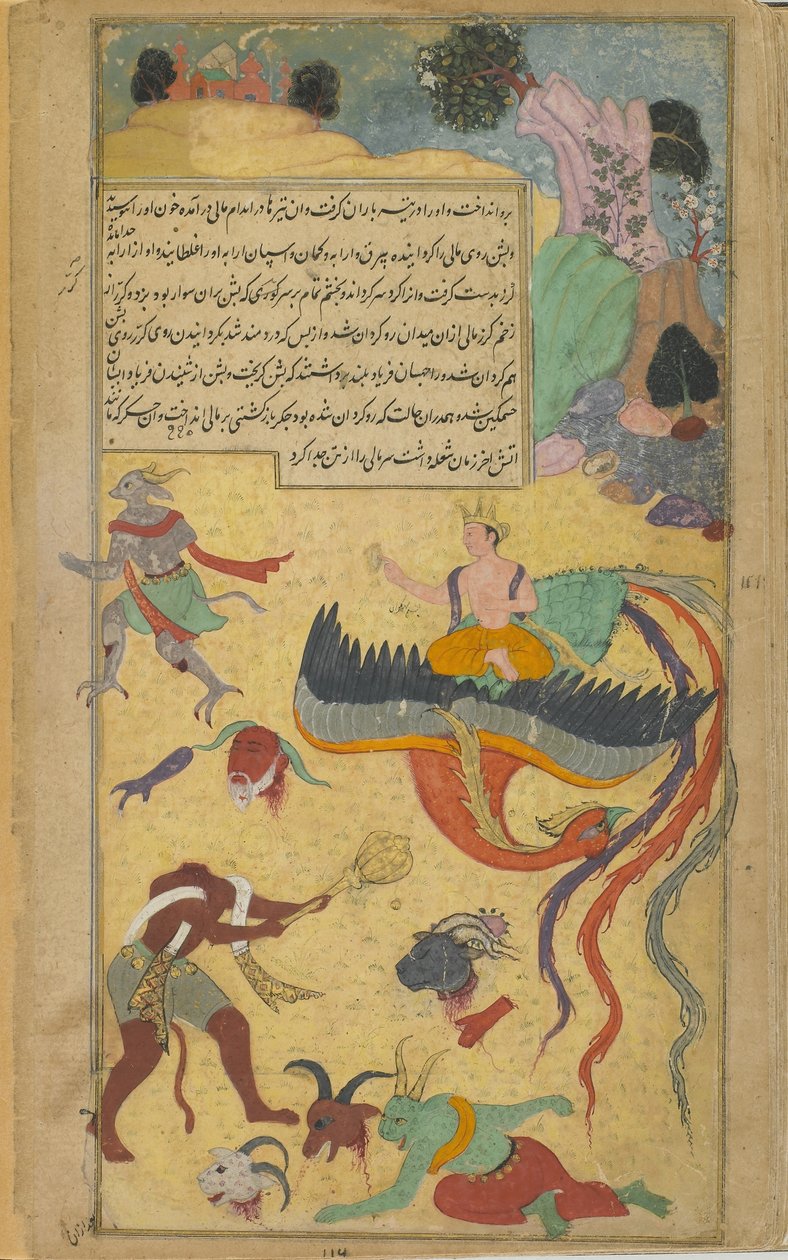 برو انداخت و او را در تیر باران گرفت و ان تیرها در اندام مالی در آمده خون او را
و بشن روی مالی را گردانیده بیرق و ارابه و کمان و اسپان ارابه او را غلطانیده و او از ارابه
گرز بدست گرفت و انرا گرد سر گردانده بخشم تمام بر سر که بشن بران سوار بود بزد و گرر از
زخم گرز مالی از ان میدان رو گردان شد و از بس که دردمند شد بگردانیدن روی گرر روی بشن
هم گردان شد و راچهسان فریاد بلند برداشتند که بشن گریخت و بشن از شنیدن فریاد ایشان
خشمگین شد و همدران حالت که رو گردان شده بود چکر باز گشتی بر مالی انداخت و ان چکر که مانند
اتش اخر زمان شعله داشت سر مالی را از تن جدا کرد
114